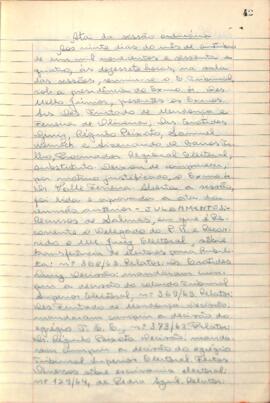 42
Ata da sessão ordinária
Aos vinte dias do mês de outubro
de um mil novecentos e sessenta e
quatro, às dezessete horas, na sala
das sessões, reuniu-se o E. Tribunal,
sob a presidência do Exmo. Sr. Des.
Mello Júnior, presentes os Exmos.
Srs. Des. Furtado de Mendonça e
Ferreira de Oliveira, Drs.
Régulo Peixoto, Samuel
e Dizenando de Barros
Procurador Regional Eleitoral,
substituto. Deixou de comparecer
por motivo justificado, o Exmo. Sr.
Dr. Valle Ferreira. Aberta a sessão,
foi lida e aprovada a ata da
anterior. JULGAMENTOS:
Recursos de Salinas, em que é Re-
corrente o Delegado do P. R. e Recor-
rido o MM. Juiz Eleitoral, sobre
transferência de eleitores para
nº 368/63. Relator: Dr.
Decisão: mandaram cum-
prir a decisão do colendo Tribunal
Superior Eleitoral; nº 369/63. Relator:
Des. Furtado de Mendonça. Decisão:
mandaram cumprir a decisão do
egrégio T. S. E.; nº 373/63. Relator:
Dr. Régulo Peixoto. Decisão: manda-
ram cumprir a decisão do egrégio
Tribunal Superior Eleitoral. Feitos
Diversos sobre escrivania eleitoral:
nº 127/64, de Pedra Azul. Relator: